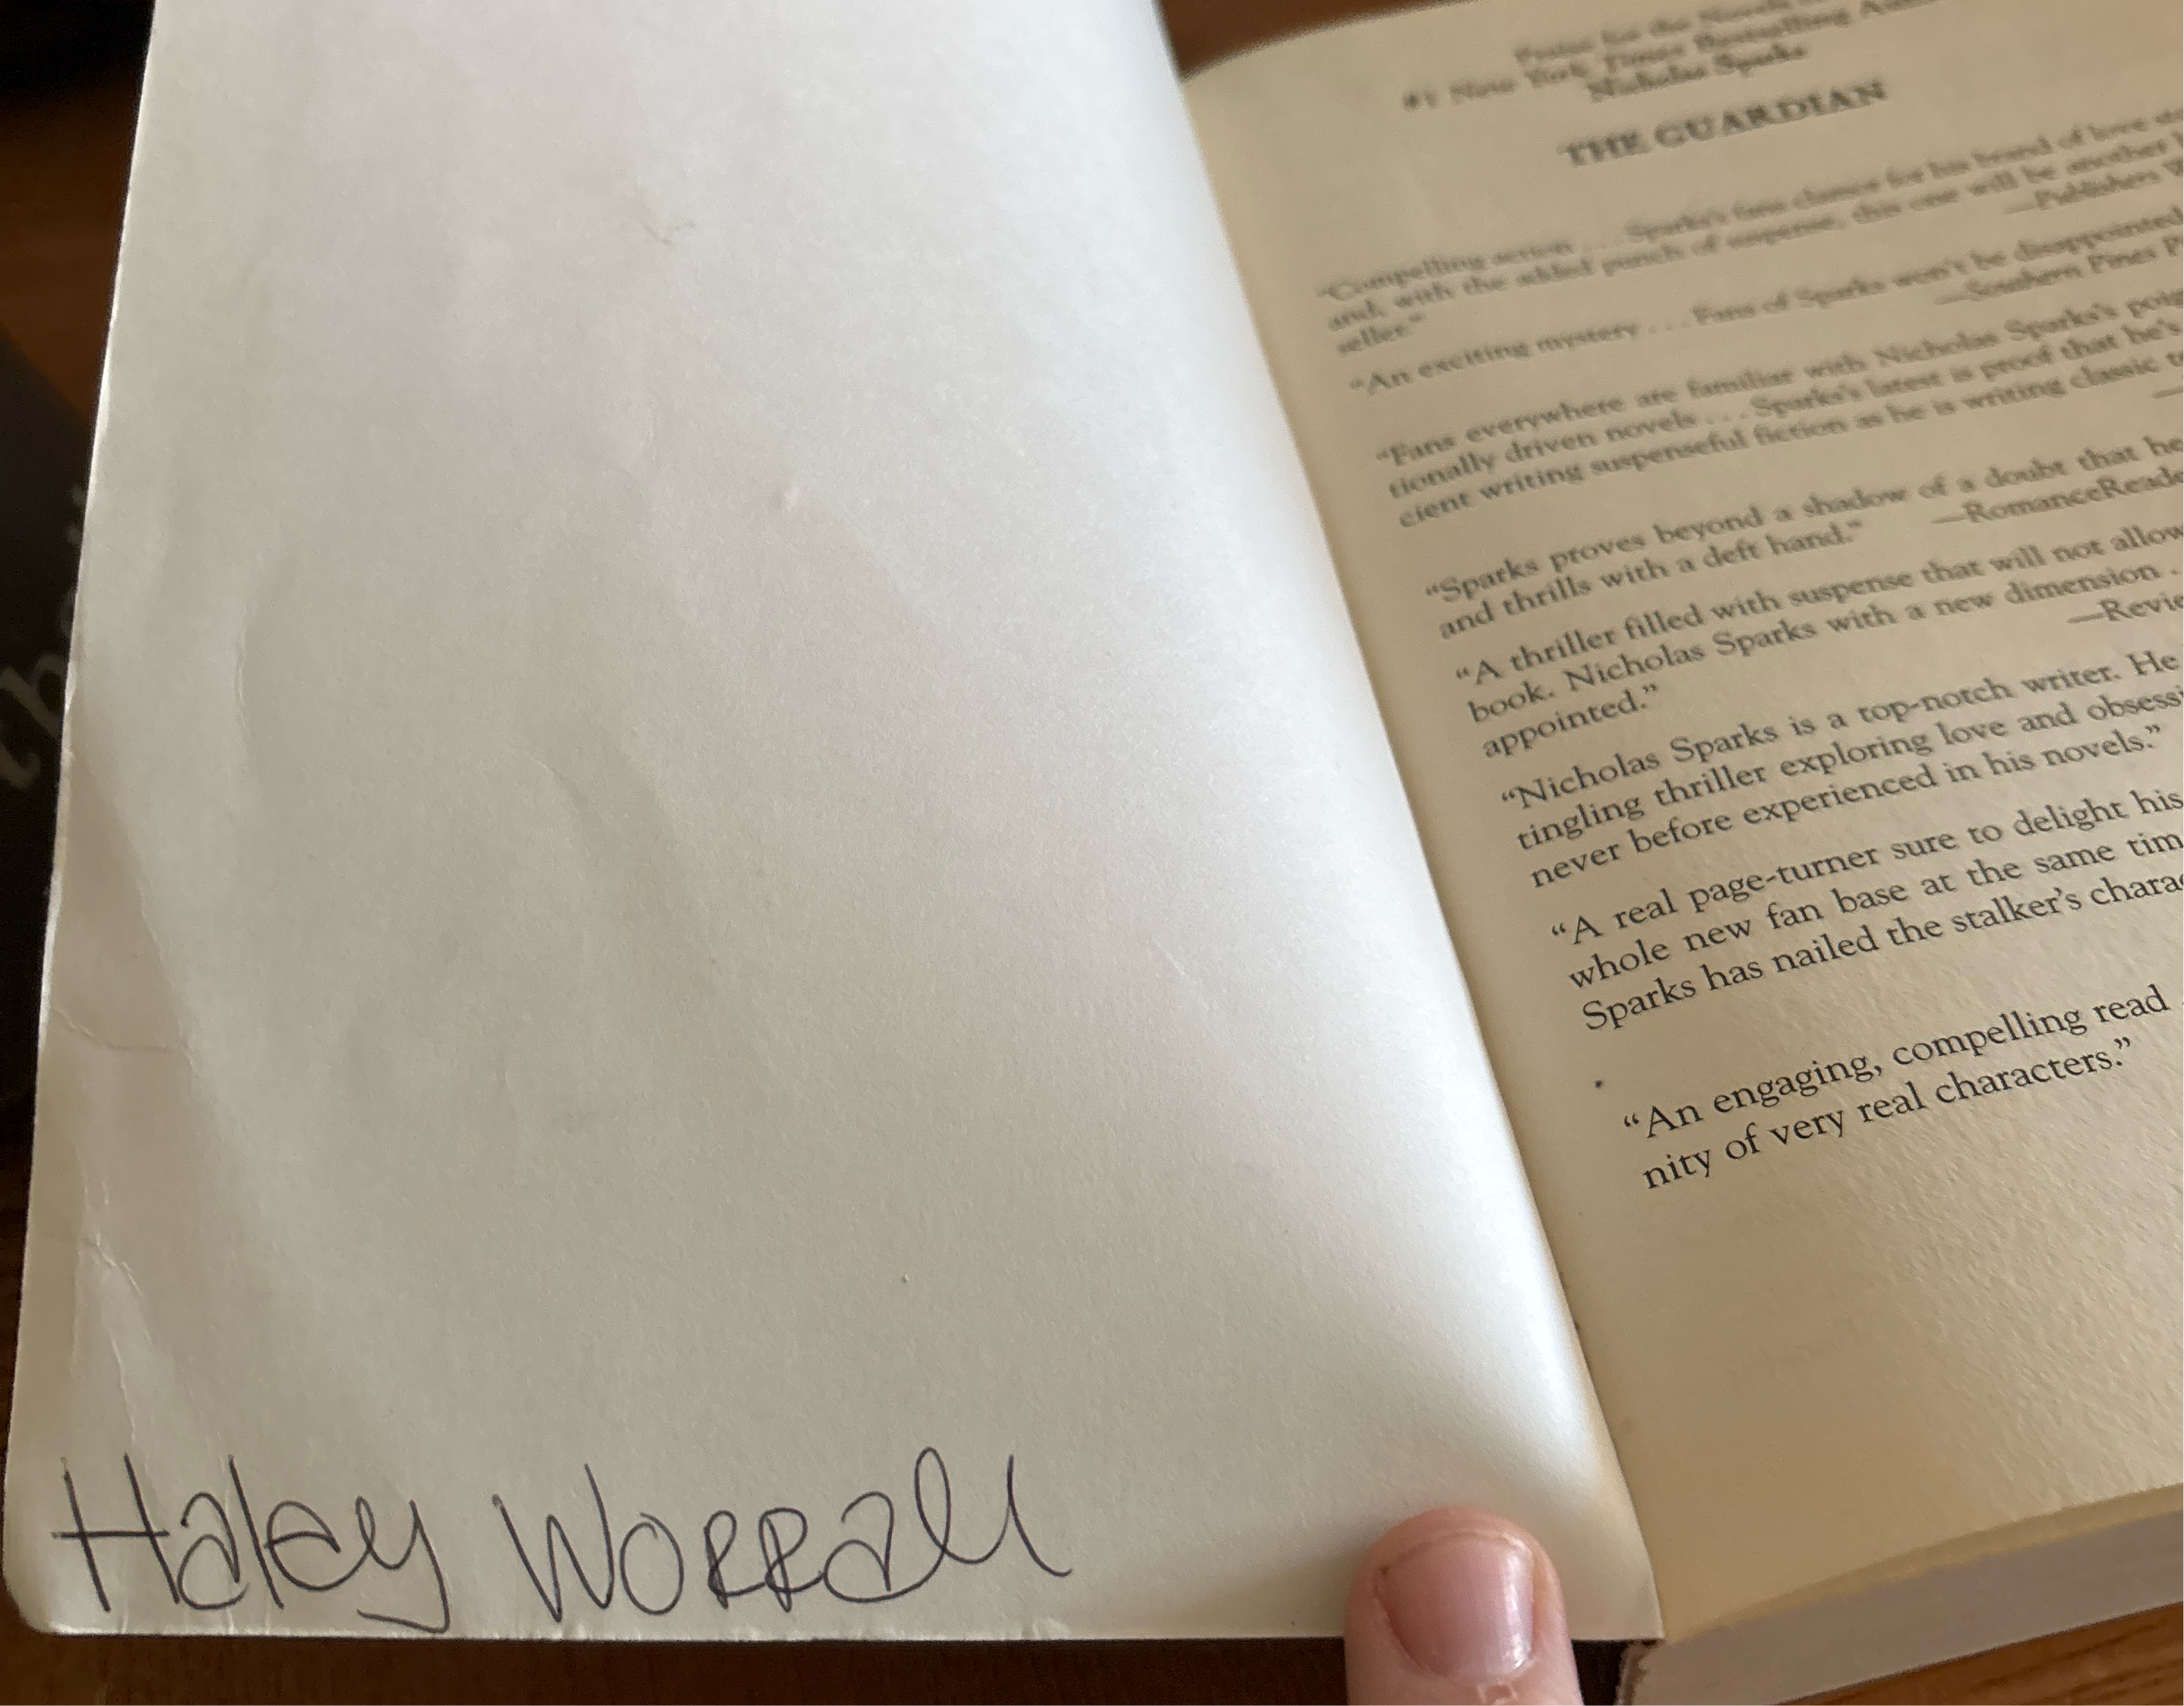 Praise for the Novels of
#1 New York Times Bestselling
Nicholas Sparks
THE GUARDIAN
"Compelling action . . . Sparks's fans clamor for his brand of love
and, with the added punch of suspense, this one will be another
seller."
—Publishers
"An exciting mystery . . . Fans of Sparks won't be disappointed
—Southern Pines
"Fans everywhere are familiar with Nicholas Sparks's
tionally driven novels . . . Sparks's latest is proof that he's
cient writing suspenseful fiction as he is writing classic
"Sparks proves beyond a shadow of a doubt that he
and thrills with a deft hand."
"A thriller filled with suspense that will not allow
book. Nicholas Sparks with a new dimension .
appointed."
"Nicholas Sparks is a top-notch writer. He
tingling thriller exploring love and
never before experienced in his novels."
"A real page-turner sure to delight his
whole new fan base at the same
Sparks has nailed the stalker's
"An engaging, compelling read
nity of very real characters."
Haley Worrall